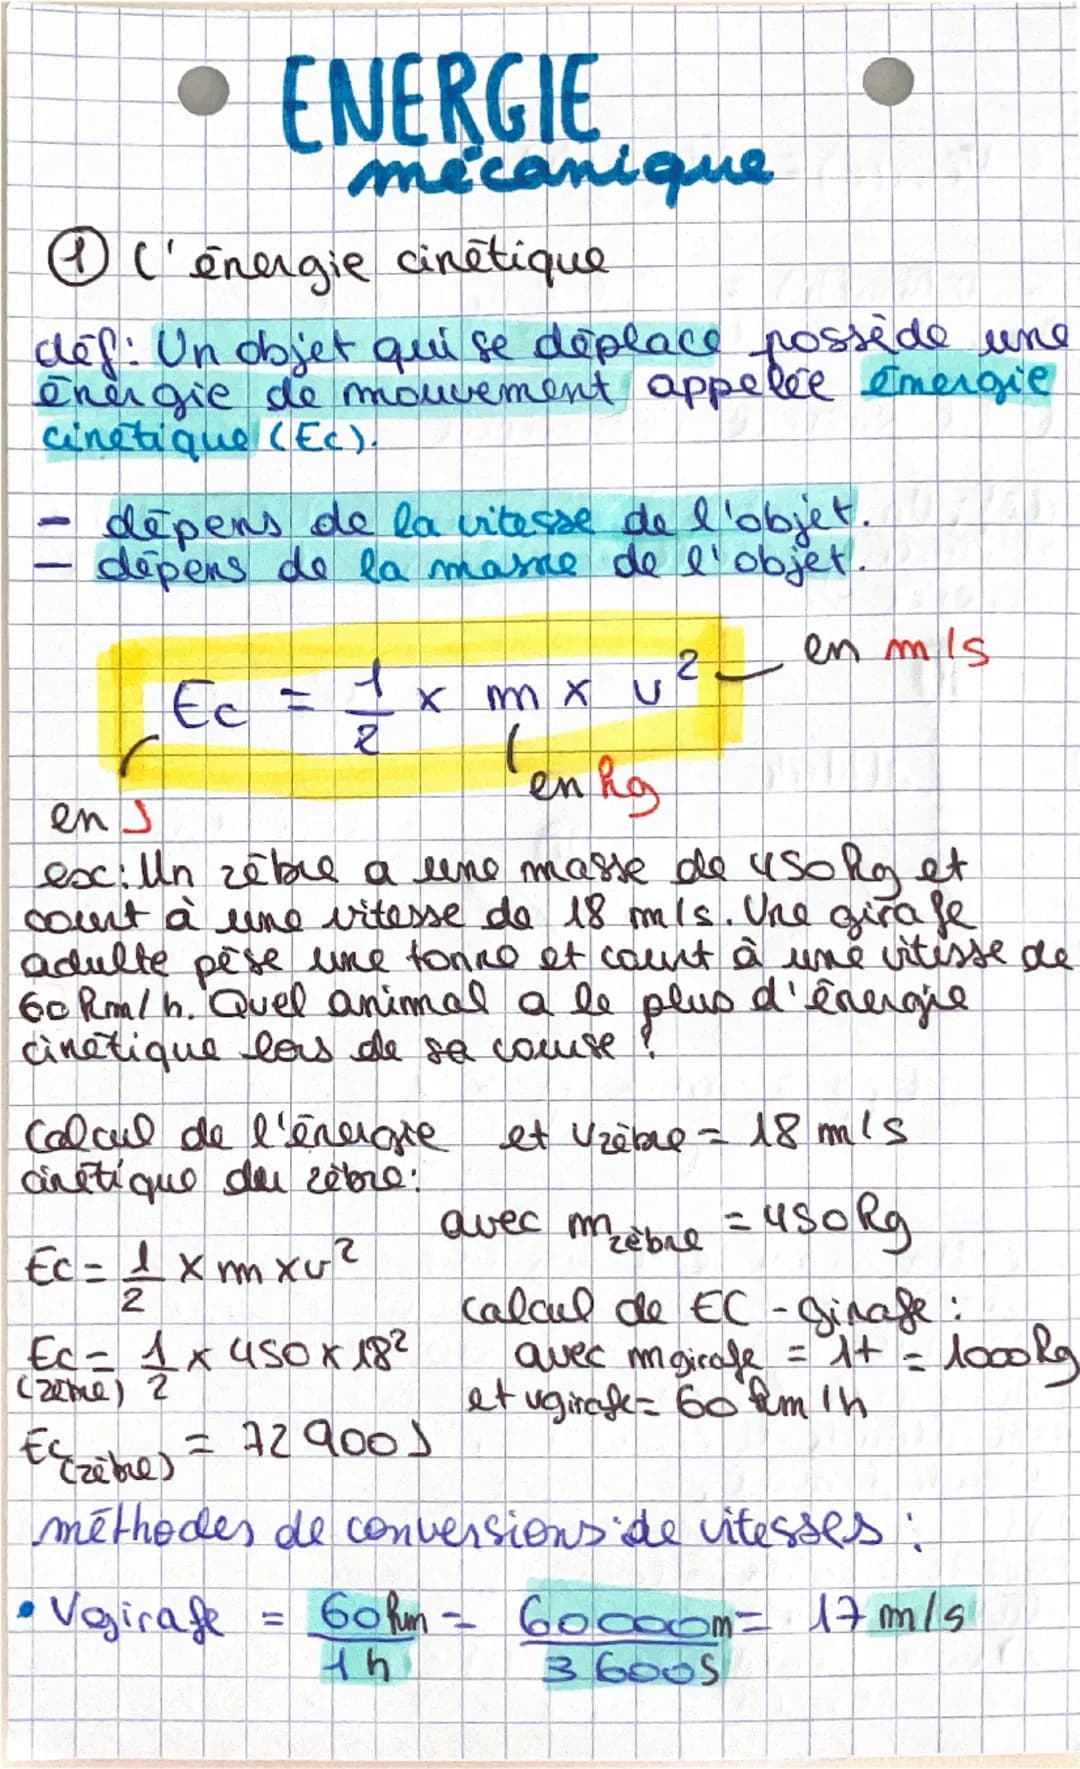 ENERGIE
mécanique
① L'énergie cinétique
déf: Un objet qui se déplace possède une
énergie de mouvement appelée émergie
cinétique (Ec).
- dépens de la vitesse de l'objet.
- dépens de la masse de l'objet.
Ec = 1/2 x m x v² en m/s
en kg
en J
ex: Un zèbre a une masse de 450 kg et
court à une vitesse de 18 m/s. Une girafe
adulte pèse une tonne et court à une vitesse de
60 km/h. Quel animal a le plus d'énergie
cinétique lors de sa course ?
Calcul de l'énergie
cinétique du zèbre:
et vzèbre = 18 m/s
avec m zèbre = 450 kg
Ec = 1/2 x m x v²
Ec (zèbre) = 1/2 x 450 x 18²
Ec (zèbre) = 72 900 J
calcul de EC - girafe :
avec mgirafe = 1t = 1000 kg
et vgirafe = 60 km/h
méthodes de conversions de vitesses :
• Vgirafe = 60 km / 1 h = 60000m / 3600s = 17 m/s